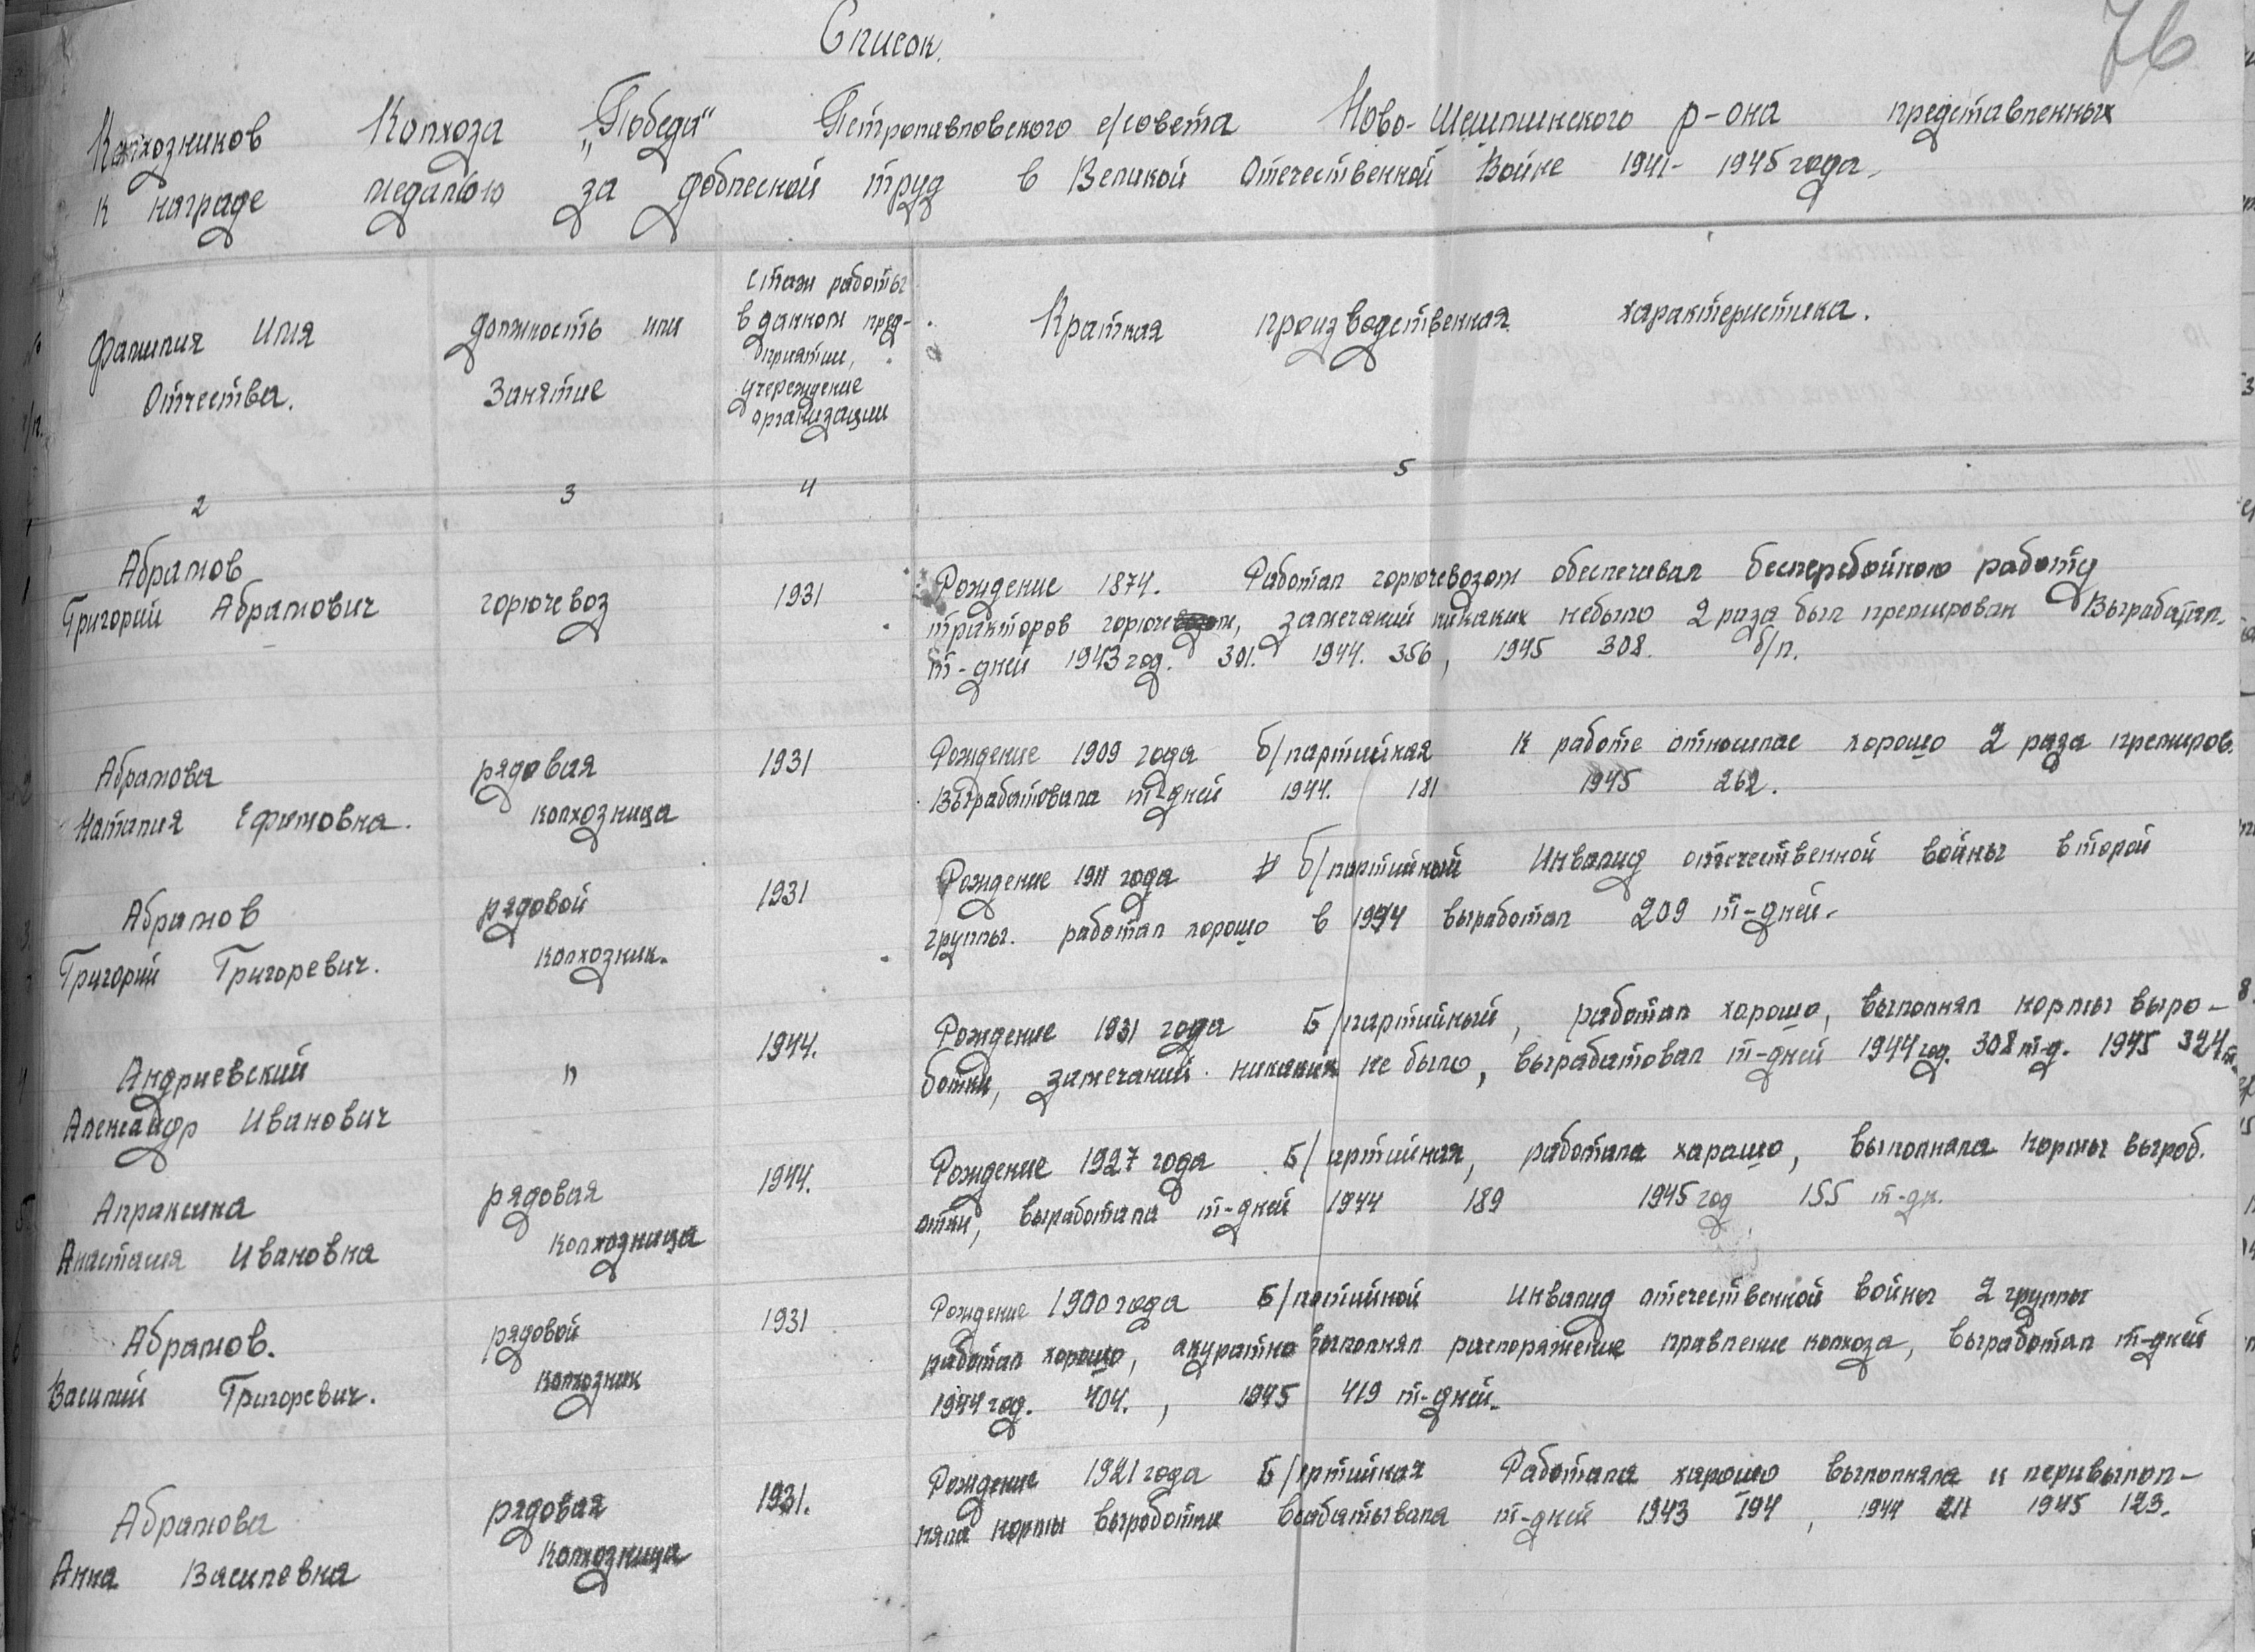 76
Список.
Колхозников Колхоза „Победа" Петропавловского с/совета Ново-Шешминского р-она представленных
к награде медалью за доблеской труд в Великой Отечественной Войне 1941-1945 года.
№ п/п.
Фамилия Имя
Отчества.
должность или
занятие
стаж работы
в данном пред-
приятии,
учереждение
организации
Краткая производственная характеристика.
1 2 3 4 5
1 Абрамов
Григорий Абрамович
горючевоз
1931
Рождение 1874. Работал горючевозом обеспечивал бесперебойною работу
тракторов горючем, замечаний никаких небыло 2 раза был премирован Вырабатал.
т-дней 1943 год. 301. 1944. 356, 1945 308. б/п.
2 Абрамова
Наталия Ефимовна.
рядовая
колхозница
1931
Рождение 1909 года б/партийная К работе отношлас хорошо 2 раза премиров.
Выработовала т-дней 1944. 181 1945 262.
3 Абрамов
Григорий Григоревич.
рядовой
колхозник.
1931
Рождение 1911 года б/партийный Инвалид отечественной войны второй
группы. работал хорошо в 1944 выработал 209 т-дней.
4 Андриевский
Александр Иванович
"
1944.
Рождение 1931 года Б/партийный, работал хорошо, выполнял нормы выро-
ботки, замечаний никаких не было, вырабатовал т-дней 1944 год. 308 т-д. 1945 324 т.
5 Апраксина
Анастасия Ивановна
рядовая
колхозница
1944.
Рождение 1927 года Б/артийная, работала харашо, выполняла нормы выроб.
отки, выработала т-дней 1944 189 1945 год 155 т-дн.
6 Абрамов.
Василий Григоревич.
рядовой
колхозник
1931
Рождение 1900 года Б/потийной Инвалид отечественной войны 2 группы
работал хорошо, акуратно выполнял распоряжение правление колхоза, выработал т-дней
1944 год. 404., 1945 419 т-дней.
Абрамова
Анна Василевна
рядовая
колхозница
1931.
Рождение 1921 года Б/ертийная Работала харошо выполняла и перивыпол-
няла нормы выроботки т-дней 1943 194, 1944 1945 123.